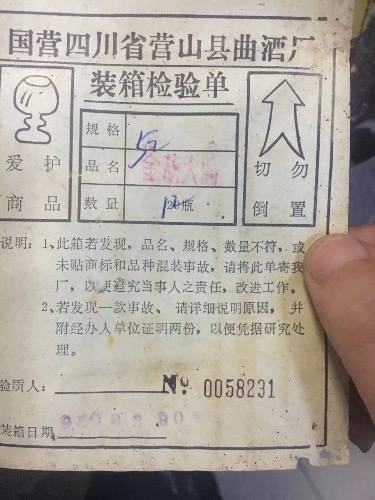 国营四川省营山县曲酒厂
装箱检验单
爱护
商品
规格
品名
数量 20瓶
切勿
倒置
说明：1、此箱若发现，品名、规格、数量不符，或
未贴商标和品种混装事故，请将此单寄我
厂，以便追究当事人之责任，改进工作。
2、若发现一款事故、请详细说明原因，并
附经办人单位证明两份，以便凭据研究处
理。
验质人：
№ 0058231
装箱日期